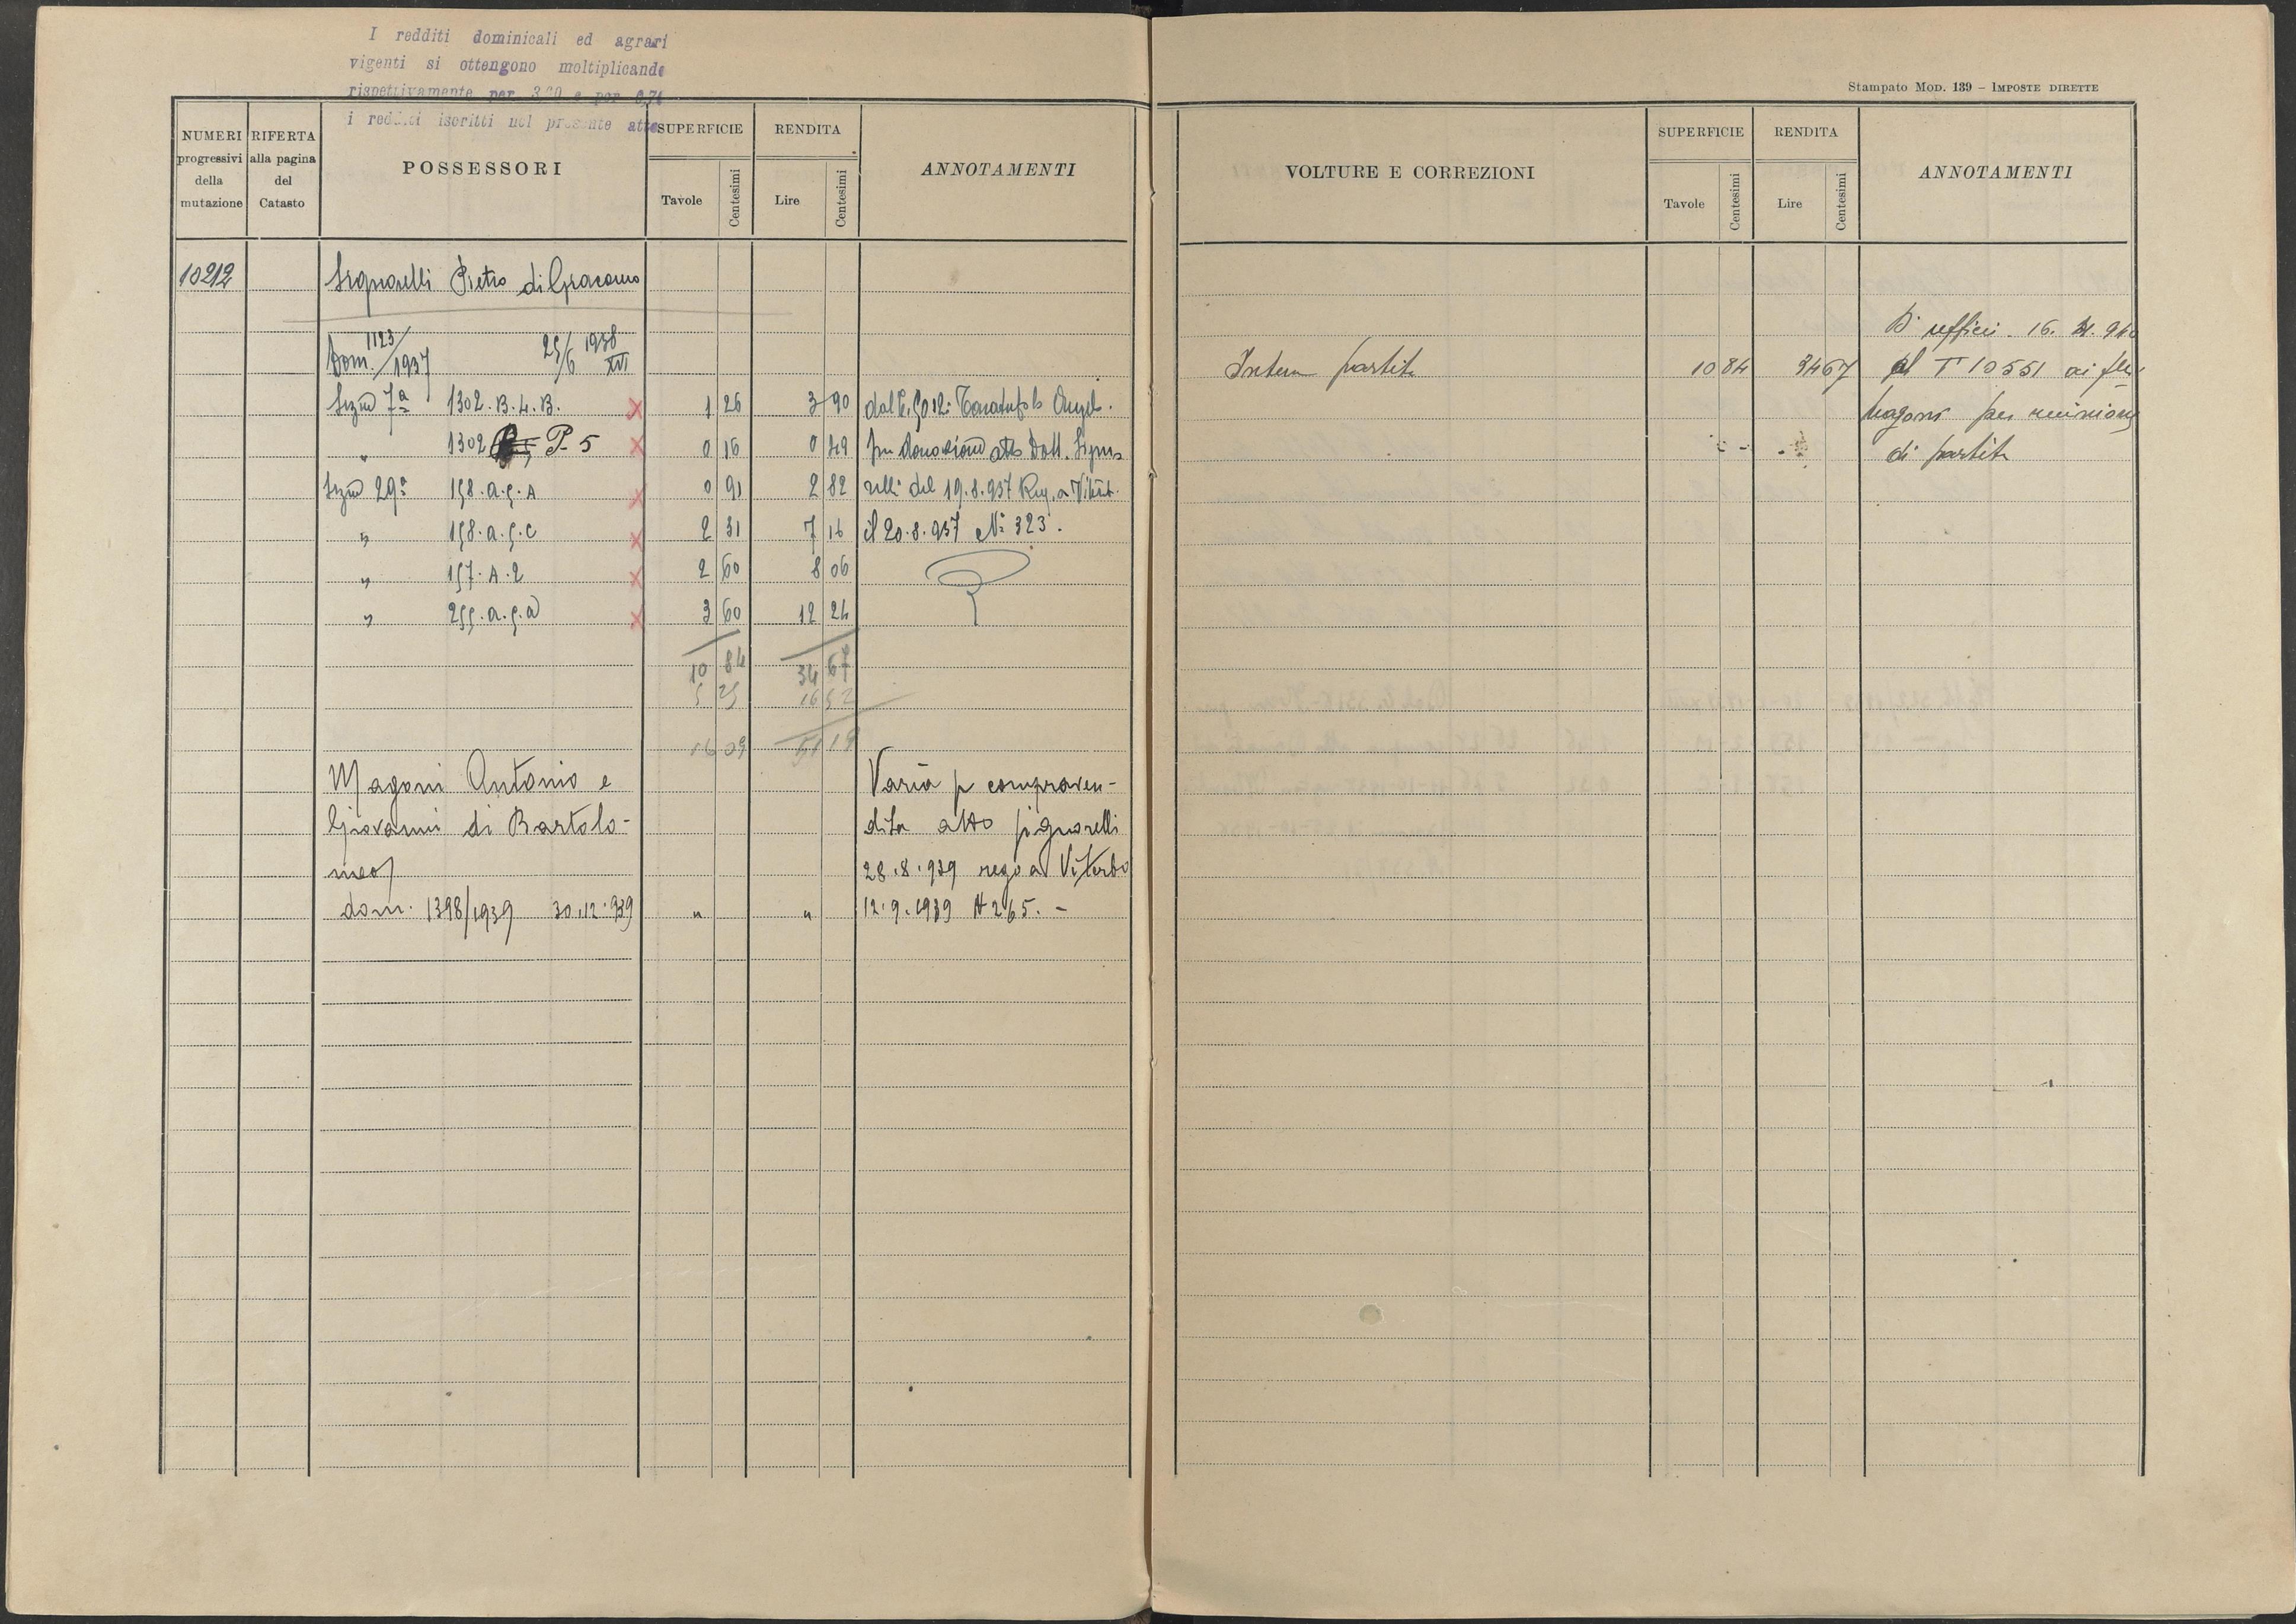 I redditi dominicali ed agrari
vigenti si ottengono moltiplicando
rispettivamente per 3.20 e per 0,74
i redditi iscritti nel presente atto
NUMERI progressivi della mutazione
RIFERTA alla pagina del Catasto
POSSESSORI
SUPERFICIE Tavole Centesimi
RENDITA Lire Centesimi
ANNOTAMENTI
10212 Signorelli Pietro di Giacomo
Dom. 1123/1937 25/6 1938 XVI
Sezne 7ª 1302.B.4.B. X 1 26 3 90 dal
" 1302 P-5 X 0 16 0 49 per donazione atto Dott. Signo
Sezne 29ª 158.a.5.A X 0 91 2 82 relli del 19.8.937 Reg. a Viterb.
" 158.a.5.C X 2 31 7 16 il 20.8.937 N: 323.
" 157.A.2 X 2 60 8 06
" 255.a.5.a X 3 60 12 24
10 84 34 67
5 25 16 52
16 09 51 19
Magoni Antonio e Varia p compraven-
Giovanni di Bartolo- dita atto Signorelli
meo 28.8.939 rego a Viterbo
dom. 1398/1939 30.12.939 " " 12.9.1939 N 265. -
Stampato MOD. 139 - IMPOSTE DIRETTE
VOLTURE E CORREZIONI
SUPERFICIE Tavole Centesimi
RENDITA Lire Centesimi
ANNOTAMENTI
D' ufficio 16.
Intera partita 10 84 34 67 al T 10551 ai
Magoni per riunione
di partita